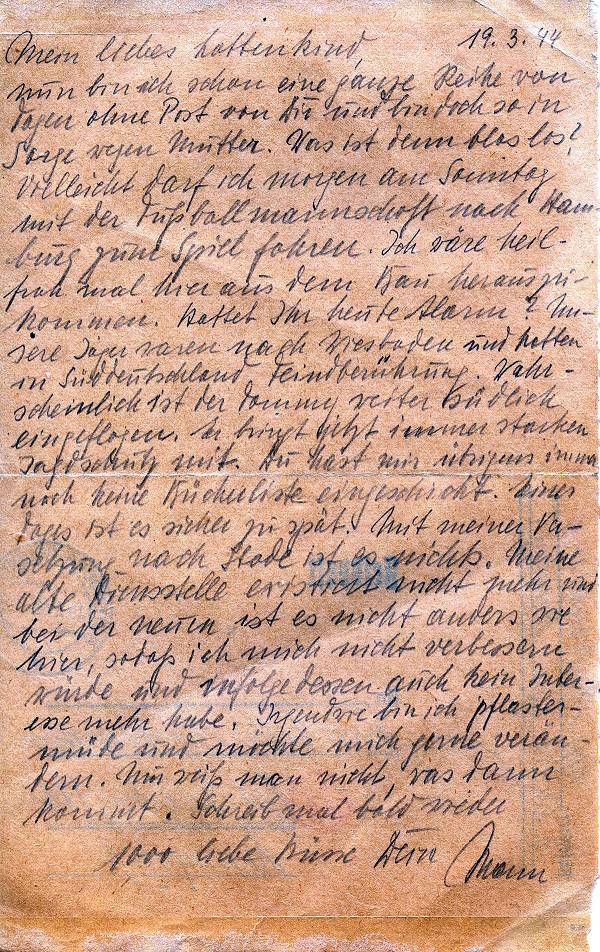 19.3.44
Mein liebes Lottenkind,
nun bin ich schon eine ganze Reihe von
Tagen ohne Post von Dir und bin doch so in
Sorge wegen Mutter. Was ist denn blos los?
Vielleicht darf ich morgen am Sonntag
mit der Fußballmannschaft nach Ham-
burg zum Spiel fahren. Ich wäre heil-
froh mal hier aus dem Bau herauszu-
kommen. Hattet Ihr heute Alarm? Un-
sere Jäger waren nach Wiesbaden und hatten
in Süddeutschland Feindberührung. Wahr-
scheinlich ist der Tommy weiter südlich
eingeflogen. Er bringt jetzt immer starken
Jagdschutz mit. Du hast mir übrigens immer
noch keine Bücherliste eingeschickt. Eines
Tages ist es sicher zu spät. Mit meiner Ver-
setzung nach Stade ist es nichts. Meine
alte Dienststelle existiert nicht mehr und
bei der neuen ist es nicht anders wie
hier, sodaß ich mich nicht verbessern
würde und infolgedessen auch kein Inter-
esse mehr habe. Irgendwie bin ich pflaster-
müde und möchte mich gerne verän-
dern. Nur weiß man nicht, was dann
kommt. Schreib mal bald wieder
1000 liebe Küsse Dein Mann